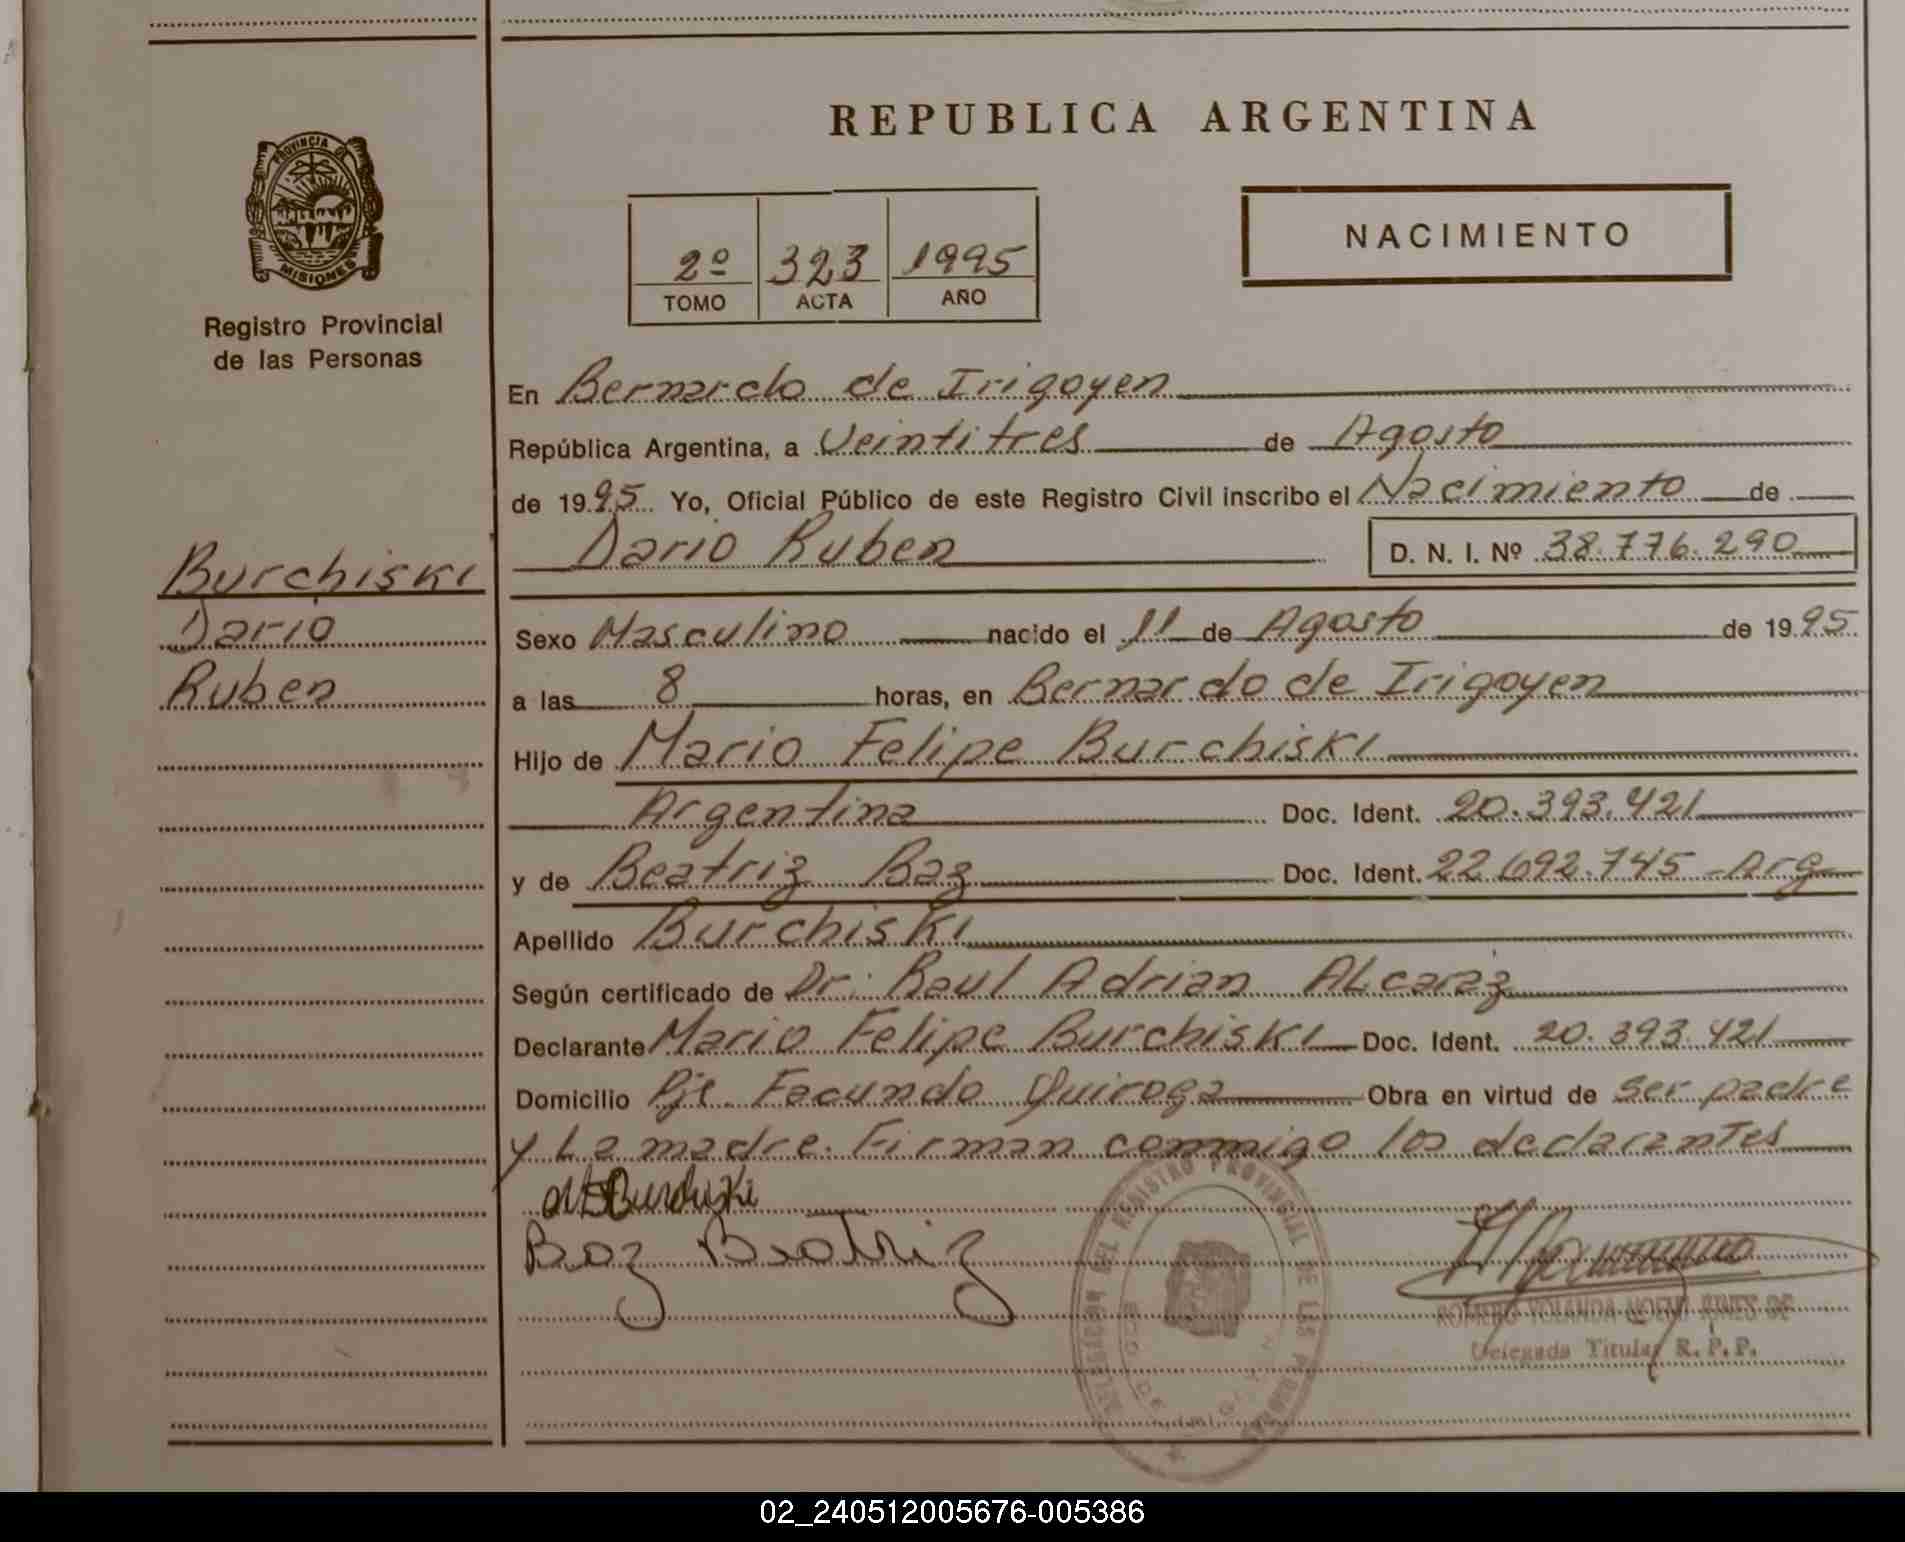 PROVINCIA DE
MISIONES
Registro Provincial
de las Personas
Burchiski
Dario
Ruben
REPUBLICA ARGENTINA
2º 323 1995
TOMO ACTA AÑO
NACIMIENTO
En Bernardo de Irigoyen
República Argentina, a Veintitres de Agosto
de 1995 Yo, Oficial Público de este Registro Civil inscribo el Nacimiento de
Dario Ruben D. N. I. Nº 38.776.290
Sexo Masculino nacido el 11 de Agosto de 1995
a las 8 horas, en Bernardo de Irigoyen
Hijo de Mario Felipe Burchiski
Argentina Doc. Ident. 20.393.421
y de Beatriz Baz Doc. Ident. 22.692.745 - Arg
Apellido Burchiski
Según certificado de Dr. Raul Adrian ALcaraz
Declarante Mario Felipe Burchiski Doc. Ident. 20.393.421
Domicilio Pje. Facundo Quiroga Obra en virtud de ser padre
y La madre. Firman conmigo los declarantes
Burchiski
Baz Beatriz
DELEGACION DEL REGISTRO PROVINCIAL DE LAS PERSONAS
ROMERO YOLANDA DE
Delegada Titular R. P. P.
02_240512005676-005386